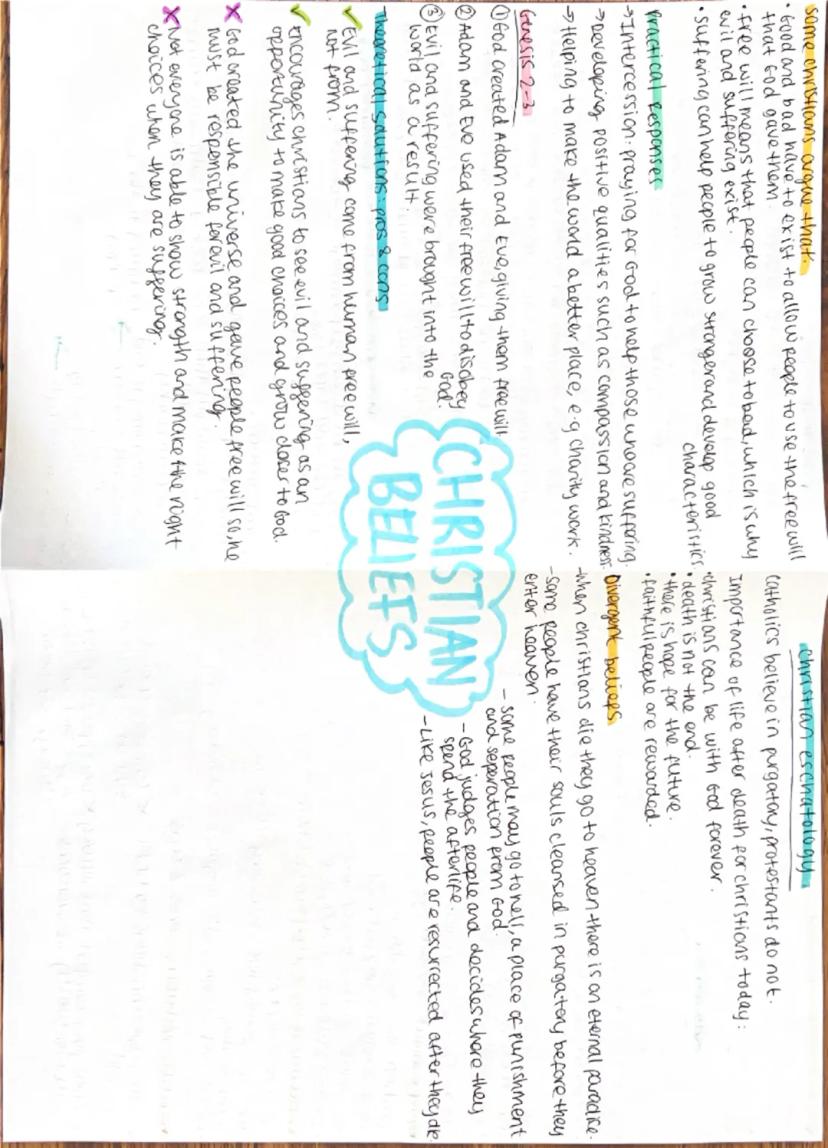 some christians argue that:
• Good and bad have to exist to allow people to use the free will
that God gave them.
• free will means that people can choose to bad, which is why
evil and suffering exist.
• suffering can help people to grow stronger and develop good
characteristics
practical responses
→ Intercession: praying for God to help those who are suffering.
→ developing positive qualities such as compassion and kindness.
→ Helping to make the world a better place, e.g charity work.
Genesis 2-3
① God created Adam and Eve, giving them free will
② Adam and Eve used their free will to disobey
God.
③ Evil and suffering were brought into the
world as a result.
Theoretical solutions: pros & cons
✓ Evil and suffering come from human free will,
not from.
✓ Encourages christians to see evil and suggering as an
opportunity to make good choices and grow closer to God.
✗ God created the universe and gave people free will so, he
must be responsible for evil and suffering.
✗ Not everyone is able to show strength and make the right
choices when they are suffering.
CHRISTIAN
BELIEFS
christian eschatology
Catholics believe in purgatory, protestants do not.
Importance of life after death for christians today:
• christians can be with God forever.
• death is not the end.
• there is hope for the future.
• faithful people are rewarded.
Divergent beliefs
- when christians die they go to heaven there is an eternal paradice.
- some people have their souls cleansed in purgatory before they
enter heaven.
- some people may go to hell, a place of punishment
and seperation from God.
- God judges people and decides where they
spend the afterlife.
- Like Jesus, people are resurrected after they die